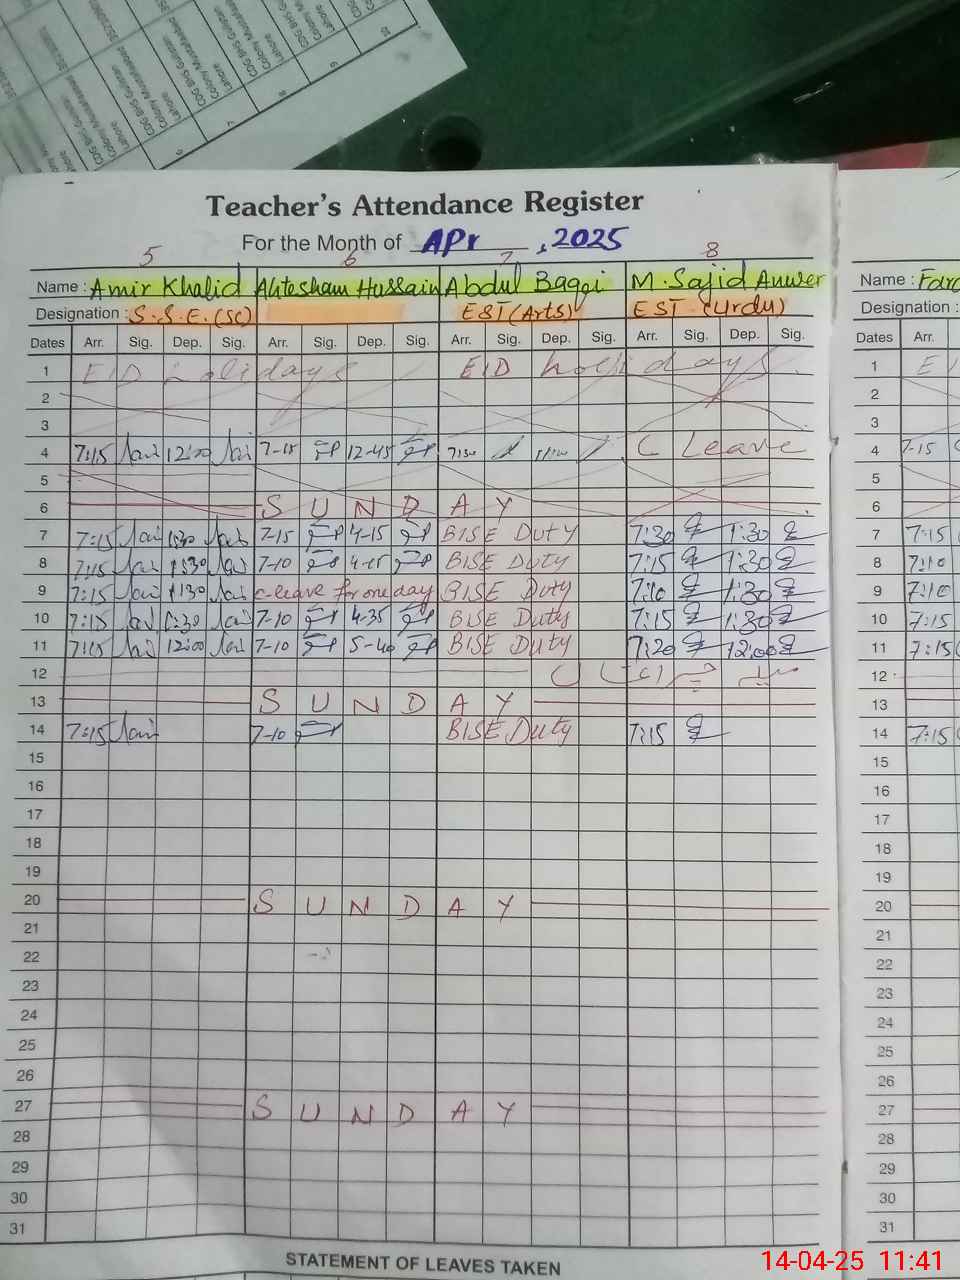 Teacher's Attendance Register
For the Month of APr , 2025
5 6 7 8
Name : Amir Khalid Ahtesham Hussain Abdul Baqqi M. Sajid Anwer Name :
Designation : S.S.E.(SC) EST (Arts) EST (Urdu) Designation :
Dates Arr. Sig. Dep. Sig. Arr. Sig. Dep. Sig. Arr. Sig. Dep. Sig. Arr. Sig. Dep. Sig. Dates Arr.
1 EID holidays EID holidays 1
2 2
3 3
4 7:15 12:00 7-15 12-45 7:30 C Leave 4 7-15
5 5
6 S U N D A Y 6
7 7:15 1:30 7-15 4-15 BISE Duty 7:30 1:30 7 7:15
8 7:15 1:30 7-10 4-15 BISE Duty 7:15 1:30 8 7:10
9 7:15 1:30 c-leave for one day BISE Duty 7:10 1:30 9 7:10
10 7:15 1:30 7-10 4-35 BISE Duty 7:15 1:30 10 7:15
11 7:15 12:00 7-10 5-40 BISE Duty 7:20 12:00 11 7:15
12 12
13 S U N D A Y 13
14 7:15 7-10 BISE Duty 7:15 14 7:15
15 15
16 16
17 17
18 18
19 19
20 S U N D A Y 20
21 21
22 22
23 23
24 24
25 25
26 26
27 S U N D A Y 27
28 28
29 29
30 30
31 31
STATEMENT OF LEAVES TAKEN
14-04-25 11:41